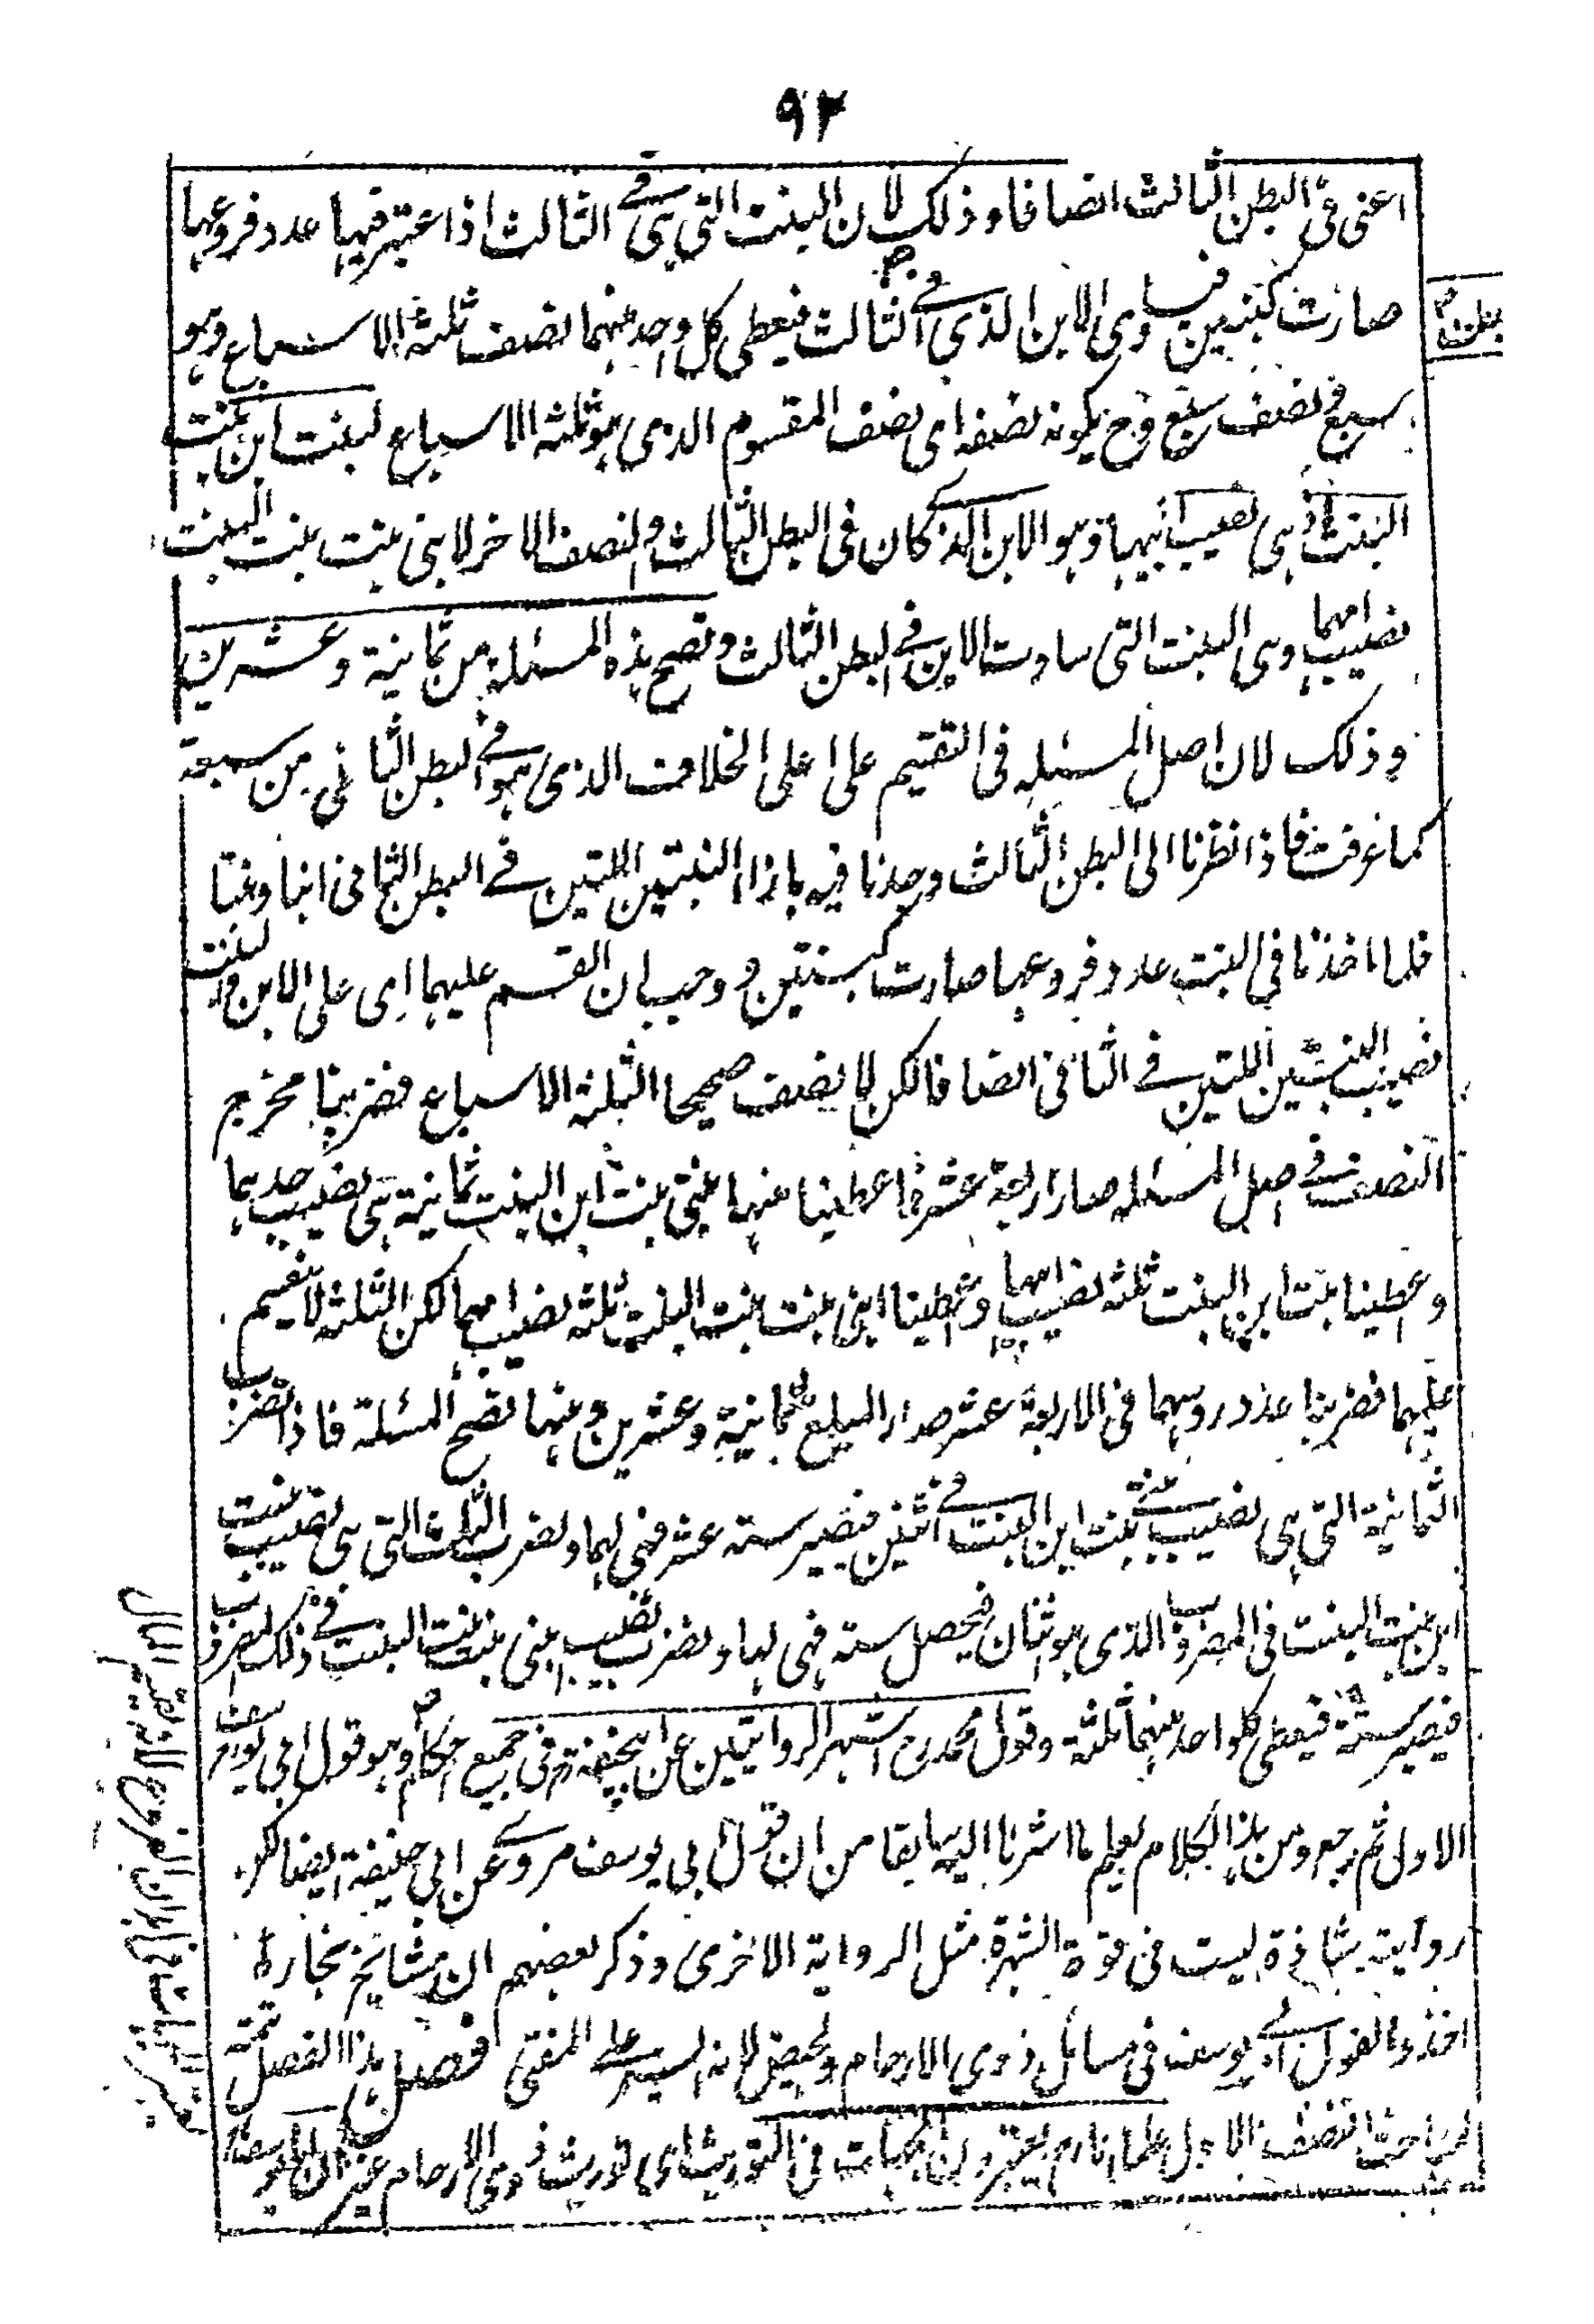 ٩٢
اعنى فى البطن الثالث انصافا وذلك لان البنت التى هى فى الثالث اذا اعتبر فيها عدد فروعها
صارت كبنتين فيساوى الابن الذى فى الثالث فيعطى كل واحد منهما نصف ثلثة الاسباع وهو
سبع ونصف سبع وح يكون نصفه اى نصف المقسوم الذى هو ثلثه الاسباع لبنت ابن بنت
البنت اذ هى نصيب ابيها وهو الابن الذى كان فى البطن الثالث والنصف الاخر لابنى بنت بنت البنت
نصيب امهما وهى البنت التى ساوت الابن فى البطن الثالث وتصح هذه المسئلة من ثمانية وعشرين
وذلك لان اصل المسئله فى التقسيم على اعلى الخلاف الذى هو فى البطن الثانى من سبعة
كما عرفت فاذا نظرنا الى البطن الثالث وجدنا فيه بازاء البنتين اللتين فى البطن الثانى ابنا وبنتا
فلما اخذنا فى البنت عدد فروعها صارت كبنتين ووجب ان القسم عليهما اى على الابن والبنت
نصيب البنتين اللتين فى الثانى انصافا لكن لا ينصف صحيحا الثلثة الاسباع فضربنا مخرج
النصف فى اصل المسئله صار اربعة عشر فاعطينا منها بنتى بنت ابن البنت ثمانية هى نصيب جدهما
واعطينا بنت ابن البنت ثلثة نصيب ابيها واعطينا ابنى بنت بنت البنت ثلثه نصيب امهما لكن الثلثة لا ينقسم
عليهما فضربنا عدد روسهما فى الاربعة عشر صار المبلغ ثمانية وعشرين ومنها تصح المسئلة فاذا نضرب
الثمانية التى هى نصيب بنتى بنت ابن البنت فى اثنين فيصير سته عشر فهى لهما ونضرب الثلث التى هى نصيب بنت
ابن بنت البنت فى المضروب الذى هو اثنان فيحصل سته فهى لها ونضرب نصيب ابنى بنت بنت البنت فى ذلك المضروب
فيصير ستة فيعطى كلواحد منهما ثلثة وقول محمد رح اشهر الروايتين عن ابيحنيفة رح فى جميع احكام وهو قول ابى يوسف رح
الاول ثم رجع ومن هذا الكلام يعلم ما اشرنا اليه سابقا من ان قول ابى يوسف مروى عن ابى حنيفة ايضا لكنه
رواية شاذة ليست فى قوة الشهرة مثل الرواية الاخرى وذكر بعضهم ان مشايخ بخارا
اخذوا بقول ابى يوسف فى مسائل ذوى الارحام والحيض لانه ايسر على المفتى فصل هذا الفصل تتمة
علماؤنا رح يعتبرون الجهات فى التوريث اى توريث ذوى الارحام غير ان ابا يوسف رح